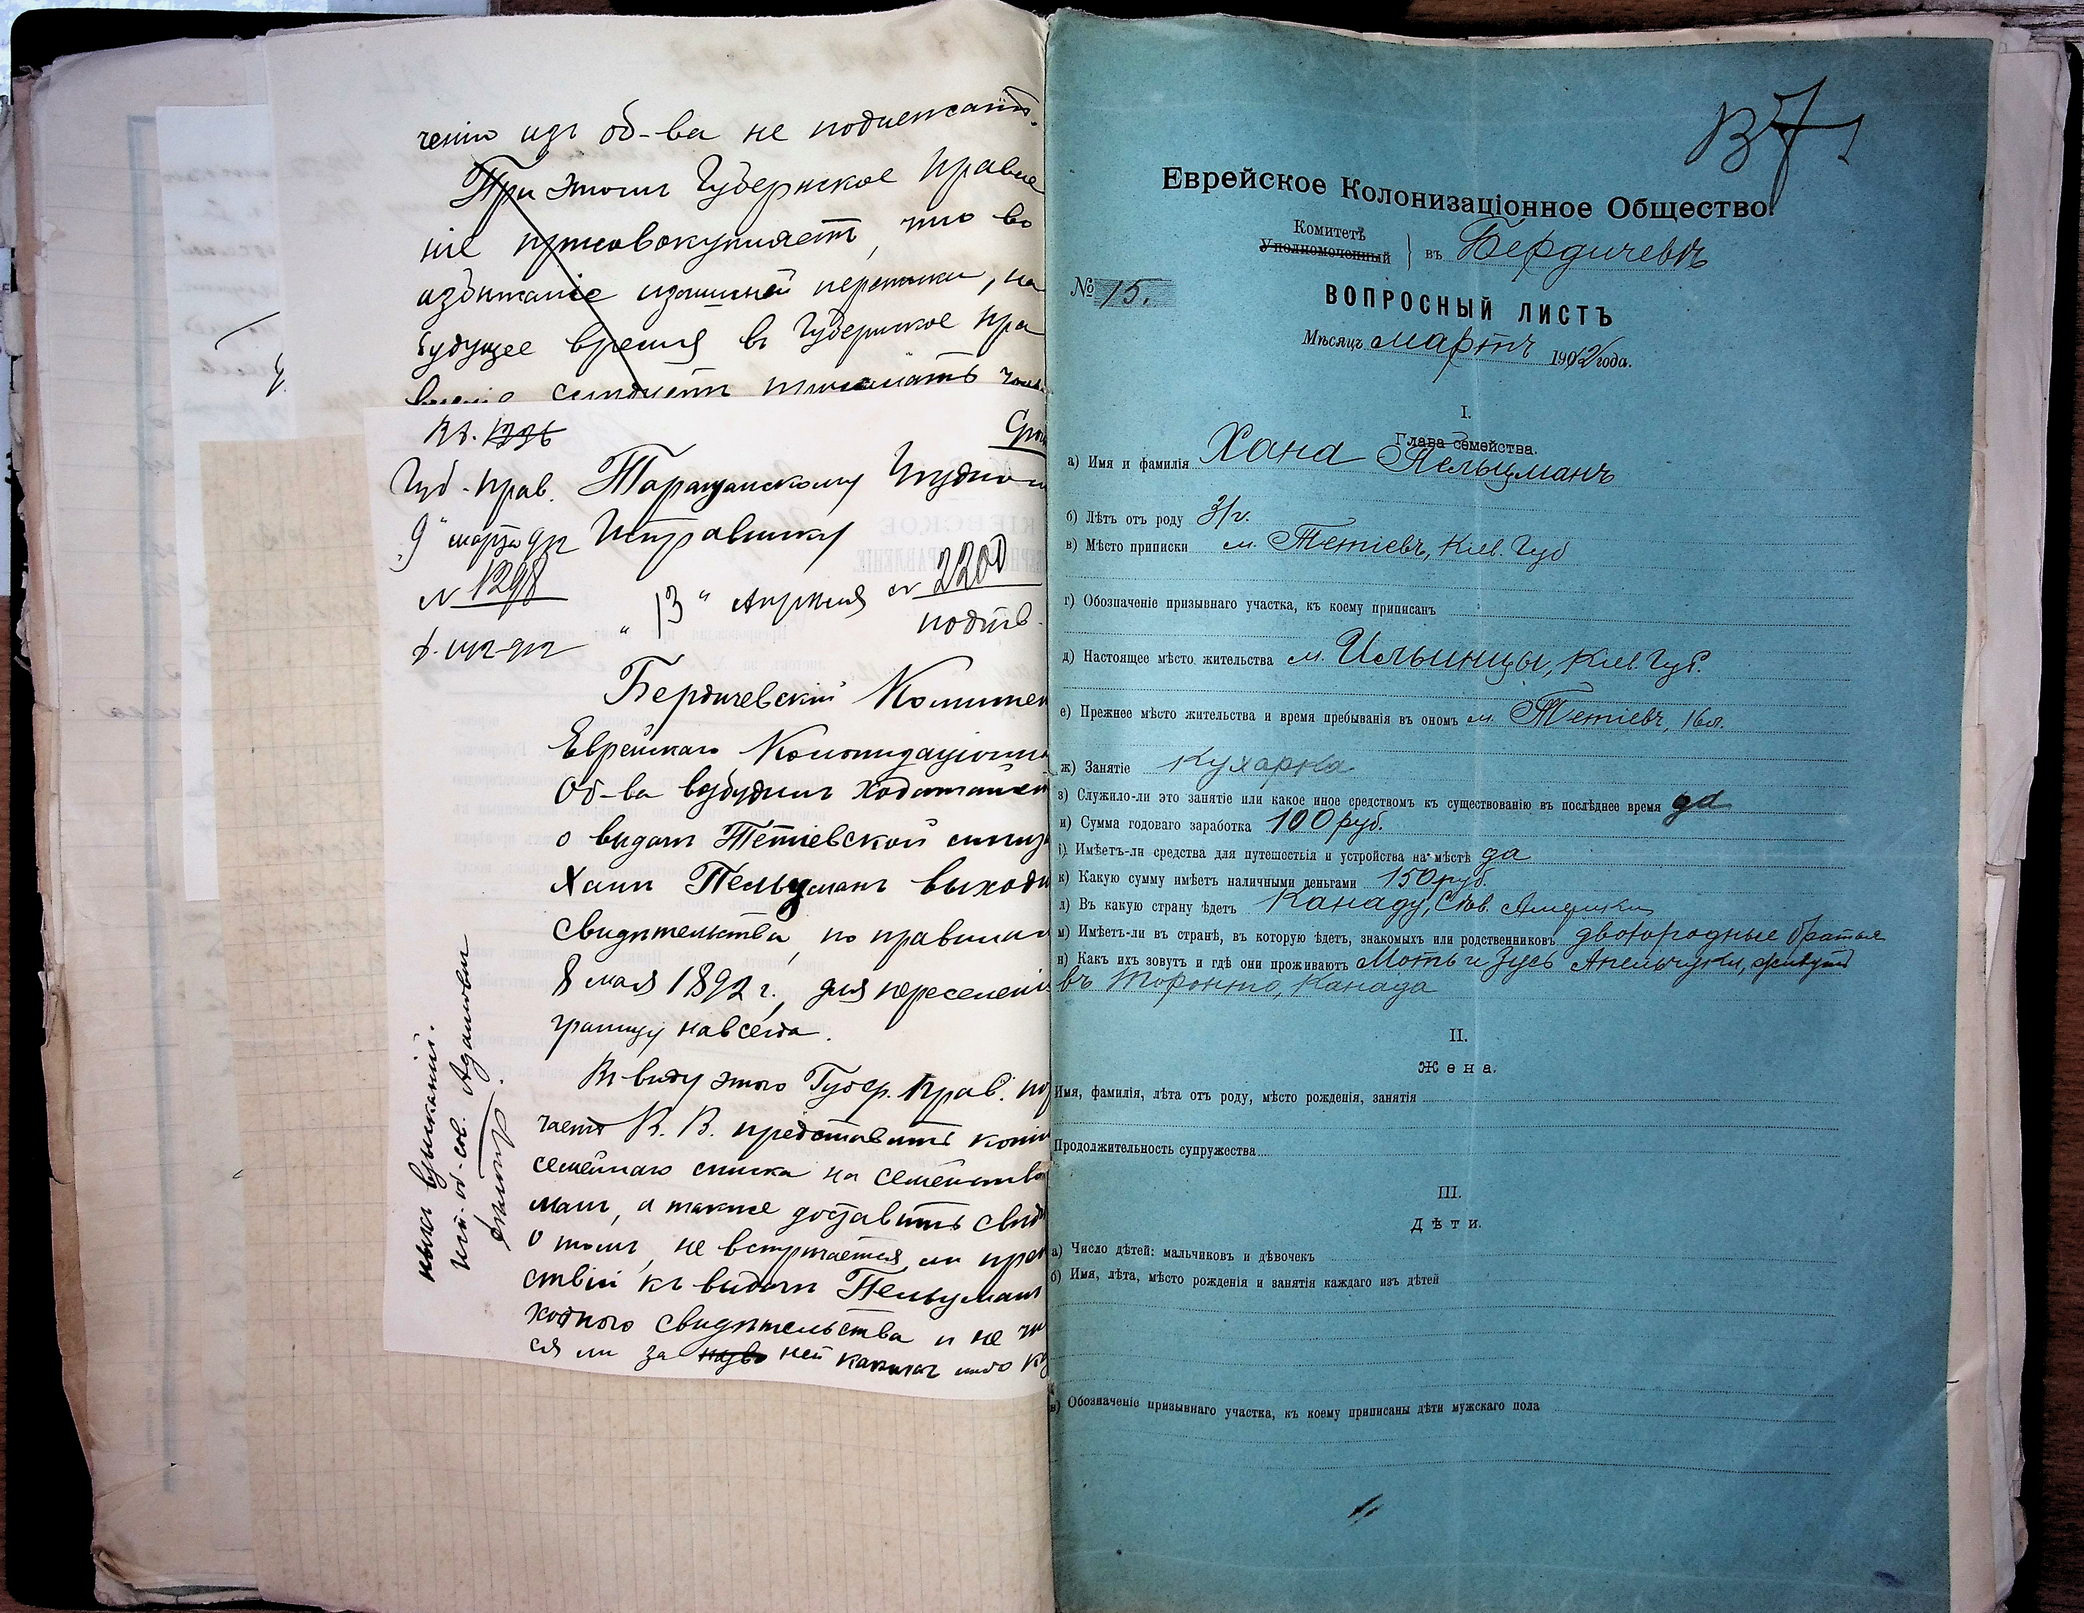 ченію изъ об-ва не подлежатъ.
При этомъ Губернское Правле
ніе присовокупляетъ, что во
избѣжаніе излишней переписки, на
будущее время въ Губернское Пра
вленіе слѣдуетъ
В. В.
Губ. Прав. Таращанскому Уѣздно
"9" марта 912 Исправнику
№ 1298 "13" Апрѣля № 2200
подтв.
Бердичевскій Комитет
Еврейскаго Колонизаціонна
Об-ва возбудилъ ходатайст
о выдачѣ Тетіевской
Ханѣ Пельцманъ выходн
свидѣтельства, по правилам
8 мая 1892 г., для переселенія
границу навсегда.
Въ виду этого Губер. Прав. по
чаетъ В. В. представить копію
семейнаго списка на семейство
манъ, а также доставить свѣд
о томъ, не встрѣчается ли преп
ствій къ выдачѣ Пельцманъ
ходного свидѣтельства и не чи
ся ли за ней какихъ либо
ныхъ взысканій.
Адамовичъ
В 7
Еврейское Колонизаціонное Общество.
Комитетъ
Уполномоченный } въ Бердичевѣ
№ 15.
ВОПРОСНЫЙ ЛИСТЪ
Мѣсяцъ мартъ 1912 года.
I.
Глава семейства.
а) Имя и фамилія Хана Пельцманъ
б) Лѣтъ отъ роду 31 г.
в) Мѣсто приписки м. Тетіевъ, Кіев. Губ
г) Обозначеніе призывнаго участка, къ коему приписанъ
д) Настоящее мѣсто жительства м. Ильинцы, Кіев. Губ.
е) Прежнее мѣсто жительства и время пребыванія въ ономъ м. Тетіевъ, 16 л.
ж) Занятіе Кухарка
з) Служило-ли это занятіе или какое иное средствомъ къ существованію въ послѣднее время да
и) Сумма годоваго заработка 100 руб.
і) Имѣетъ-ли средства для путешествія и устройства на мѣстѣ да
к) Какую сумму имѣетъ наличными деньгами 150 руб.
л) Въ какую страну ѣдетъ Канаду, Сѣв. Америки
м) Имѣетъ-ли въ странѣ, въ которую ѣдетъ, знакомыхъ или родственниковъ двоюродные братья
н) Какъ ихъ зовутъ и гдѣ они проживаютъ Мотъ и Зусь Апельчуки, живутъ
въ Торонто, Канада
II.
Жена.
Имя, фамилія, лѣта отъ роду, мѣсто рожденія, занятія
Продолжительность супружества
III.
Дѣти.
а) Число дѣтей: мальчиковъ и дѣвочекъ
б) Имя, лѣта, мѣсто рожденія и занятія каждаго изъ дѣтей
в) Обозначеніе призывнаго участка, къ коему приписаны дѣти мужскаго пола